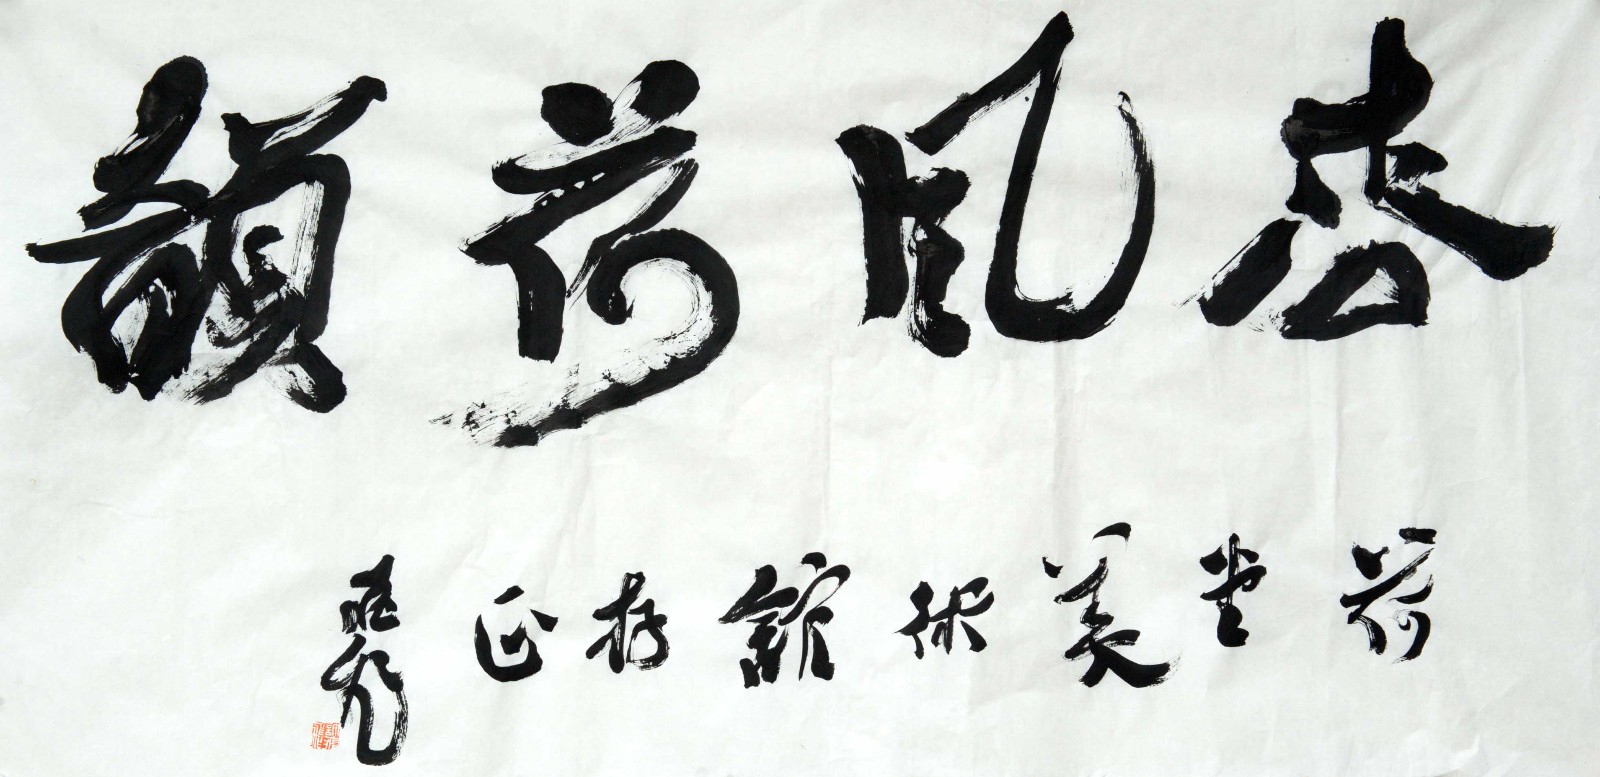 春風荷韻
荷堂美術館存正